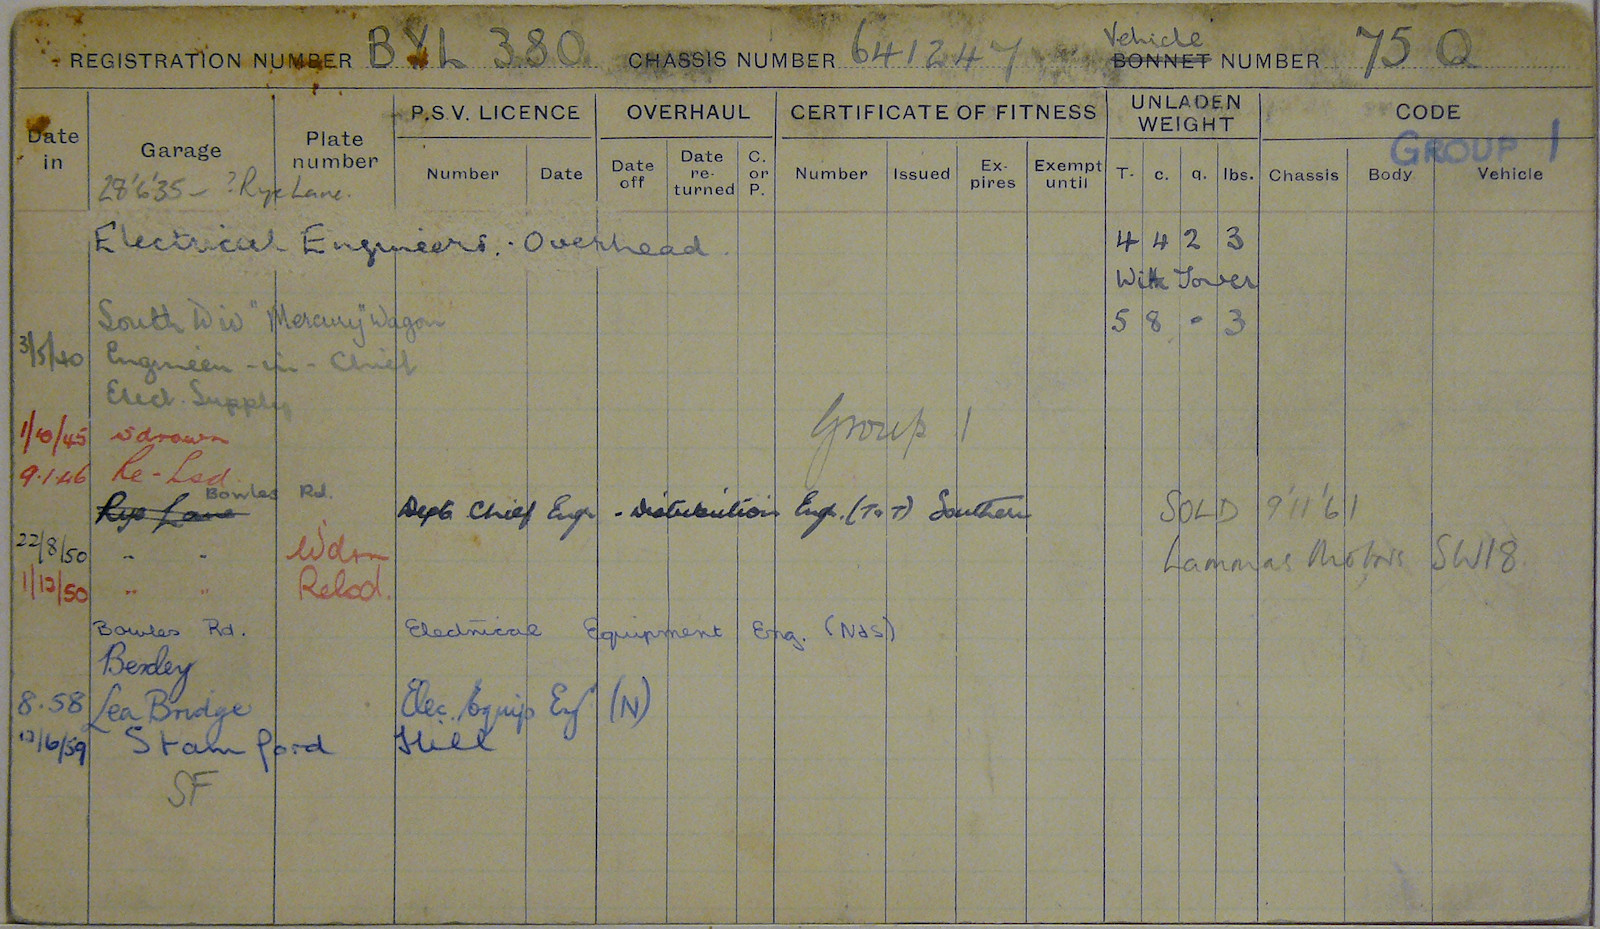 REGISTRATION NUMBER BYL 380 CHASSIS NUMBER 641247 Vehicle BONNET NUMBER 75 Q
P.S.V. LICENCE OVERHAUL CERTIFICATE OF FITNESS UNLADEN WEIGHT CODE
GROUP 1
Date in Garage Plate number Number Date Date off Date re-turned C. or P. Number Issued Ex-pires Exempt until T. c. q. lbs. Chassis Body Vehicle
28'6'35 - ? Rye Lane.
Electrical Engineers. - Overhead. 4 4 2 3
With Tower
South Div "Mercury" Wagon 5 8 - 3
3/5/40 Engineer-in-Chief
Elect. Supply
1/10/45 wdrawn Group 1
9.1.46 Re-Lsd.
Bowles Rd.
Rye Lane Dept Chief Engr - Distribution Engr. (T&T) Southern SOLD 9'11'61
22/8/50 " " Wdrn Lammas Motors SW18
1/12/50 " " Relsd.
Bowles Rd. Electrical Equipment Eng. (N&S)
Bexley
8.58 Lea Bridge Elec. Equip Eng (N)
/6/59 Stamford Hill
SF